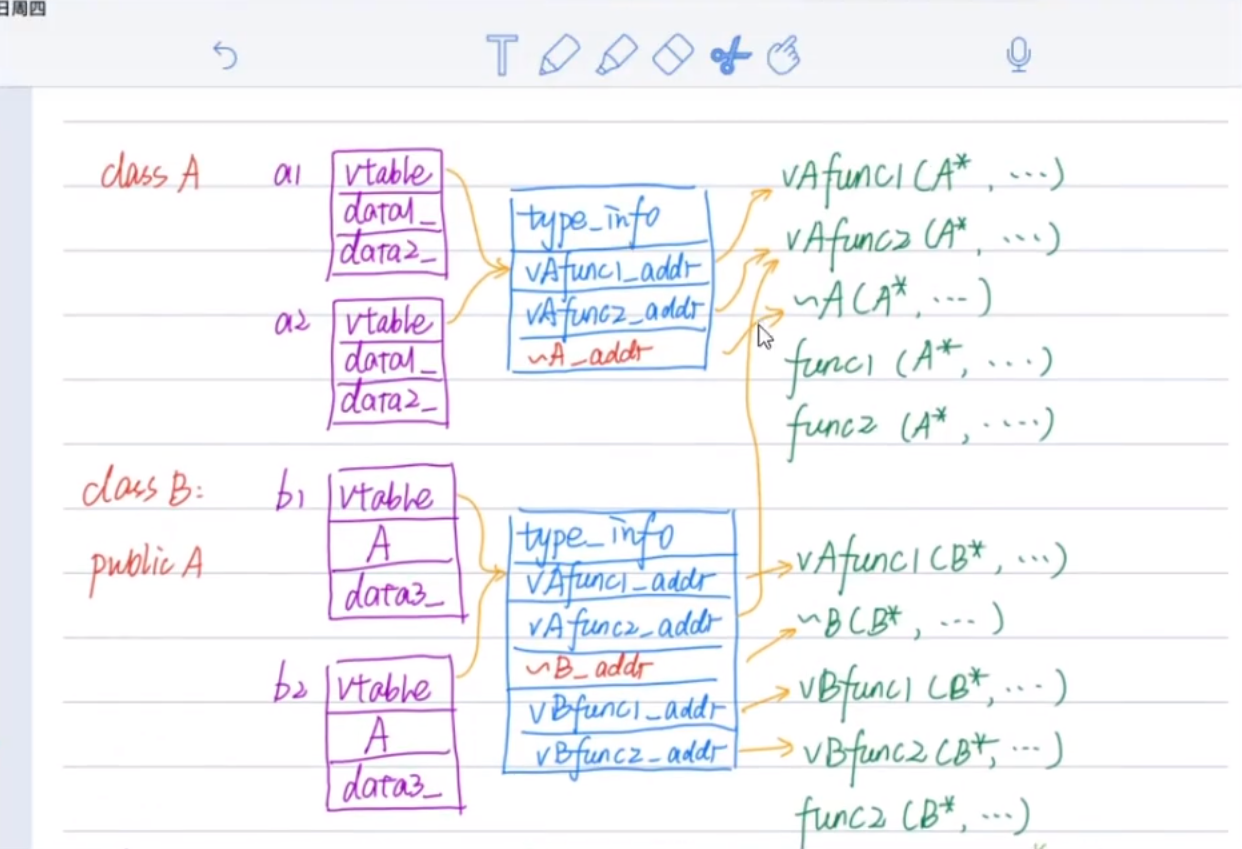 日周四
T
class A
a1
vtable
data1_
data2_
a2
vtable
data1_
data2_
type_info
vAfunc1_addr
vAfunc2_addr
~A_addr
vAfunc1(A*, ...)
vAfunc2(A*, ...)
~A(A*, ...)
func1 (A*, ...)
func2 (A*, ....)
class B:
public A
b1
vtable
A
data3_
b2
vtable
A
data3_
type_info
vAfunc1_addr
vAfunc2_addr
~B_addr
vBfunc1_addr
vBfunc2_addr
vAfunc1(B*, ...)
~B(B*, ...)
vBfunc1(B*, ...)
vBfunc2(B*, ...)
func2(B*, ...)